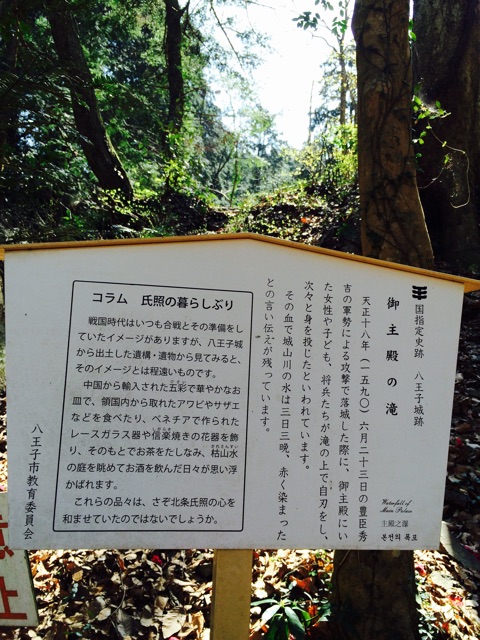 国指定史跡　八王子城跡
御主殿の滝
天正十八年（一五九〇）六月二十三日の豊臣秀
吉の軍勢による攻撃で落城した際に、御主殿にい
た女性や子ども、将兵たちが滝の上で自刃をし、
次々と身を投じたといわれています。
その血で城山川の水は三日三晩、赤く染まった
との言い伝えが残っています。
Waterfall of
Main Palace
主殿之瀑
본전의 폭포
コラム　氏照の暮らしぶり
戦国時代はいつも合戦とその準備をし
ていたイメージがありますが、八王子城
から出土した遺構・遺物から見てみると、
そのイメージとは程遠いものです。
中国から輸入された五彩で華やかなお
皿で、領国内から取れたアワビやサザエ
などを食べたり、ベネチアで作られた
レースガラス器や信楽焼きの花器を飾
り、そのもとでお茶をたしなみ、枯山水
の庭を眺めてお酒を飲んだ日々が思い浮
かばれます。
これらの品々は、さぞ北条氏照の心を
和ませていたのではないでしょうか。
八王子市教育委員会
止